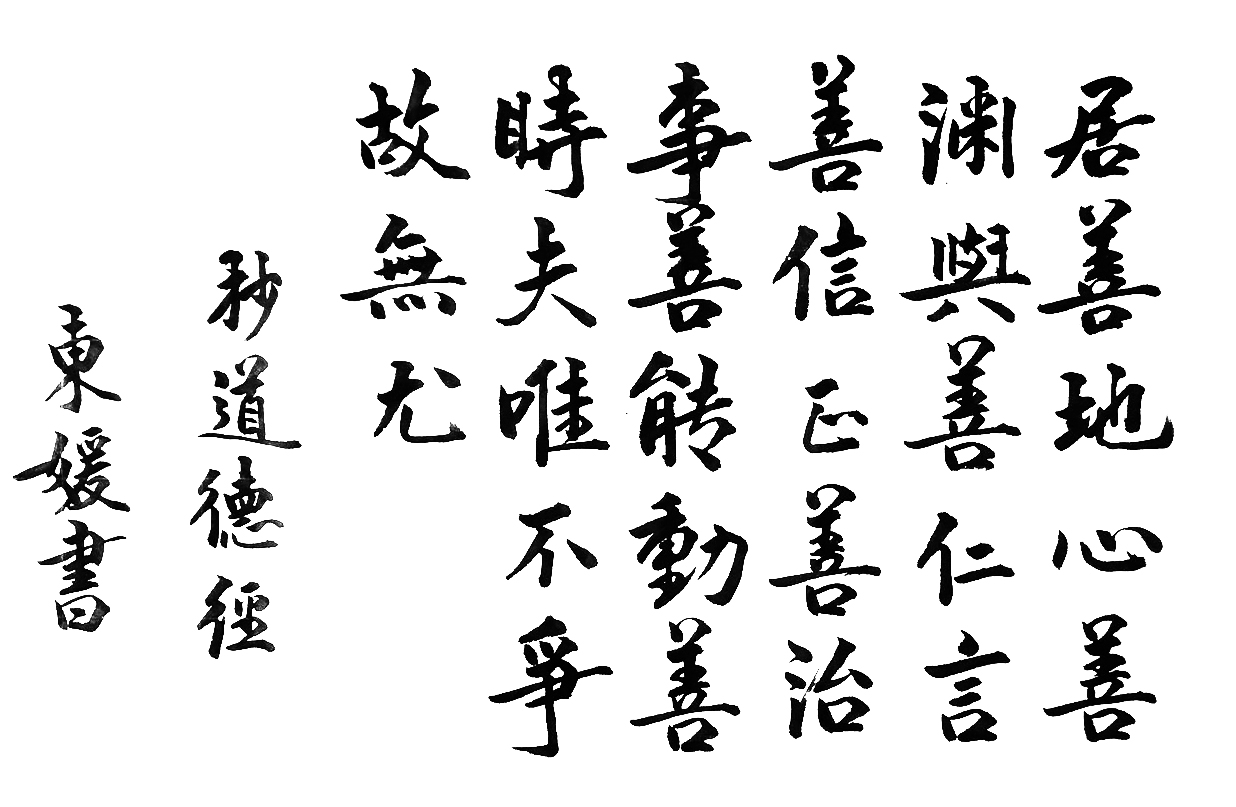 居善地心善
渊與善仁言
善信正善治
事善能動善
時夫唯不爭
故無尤
秒道德經
東媛書